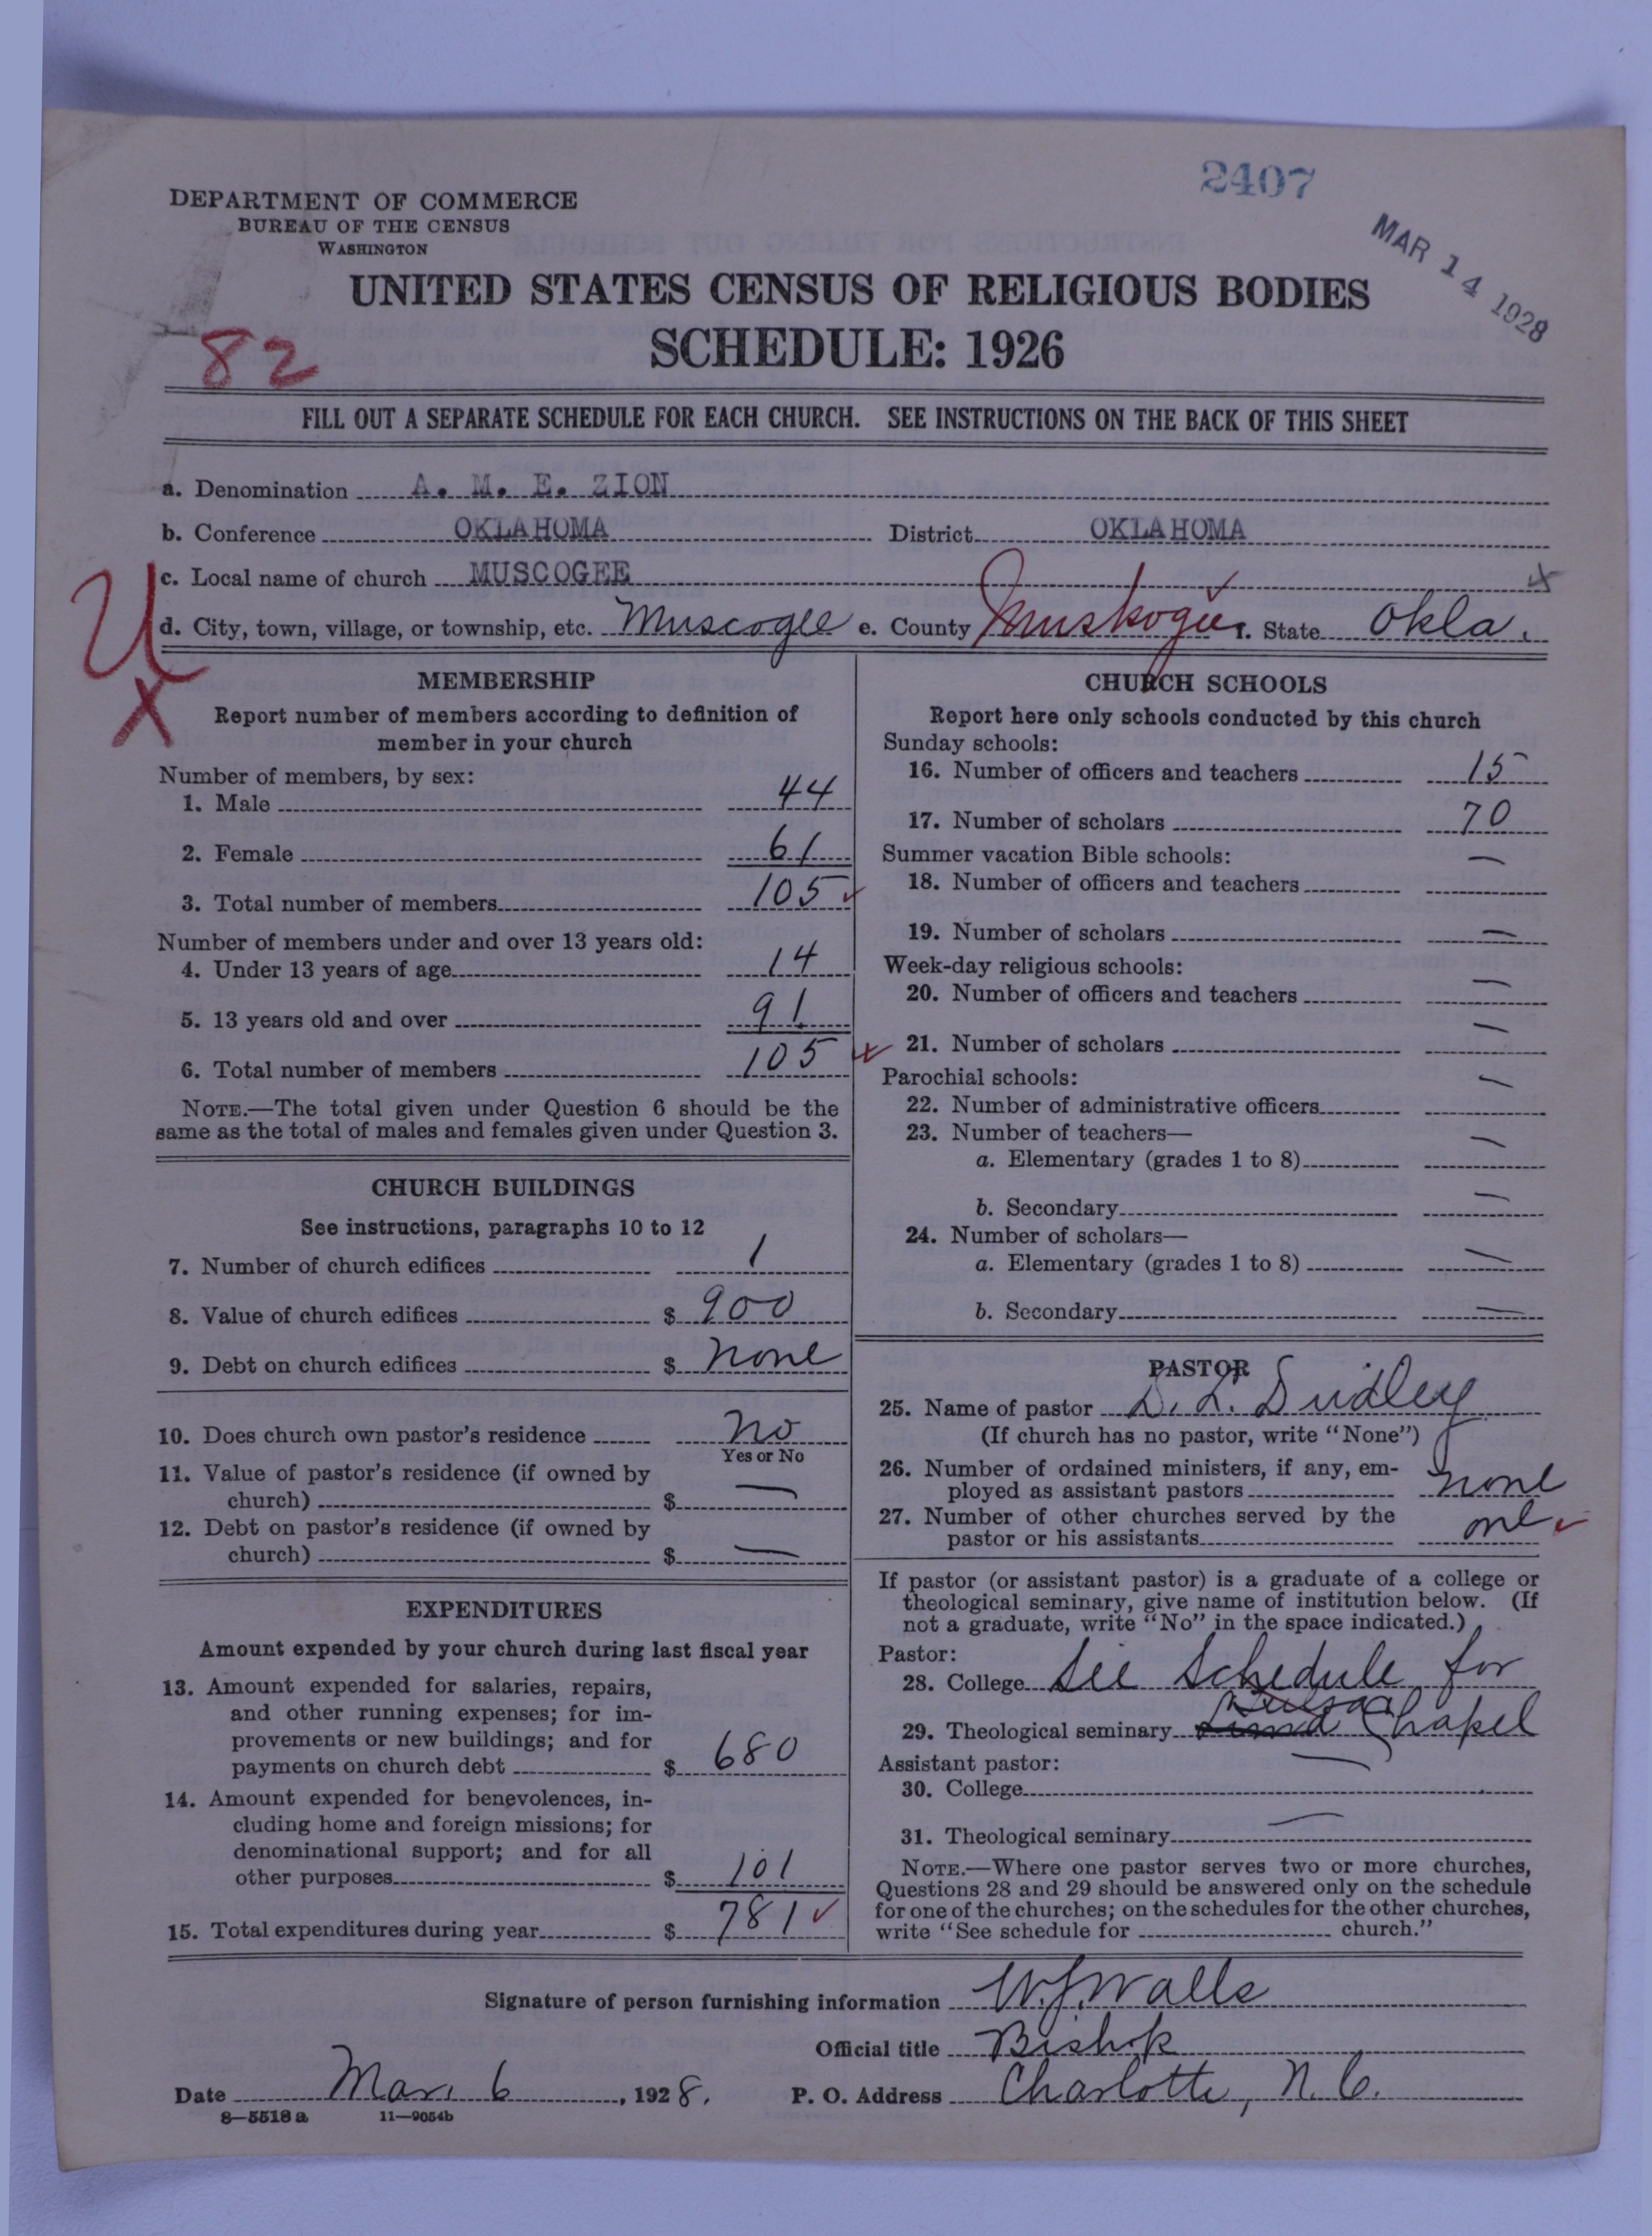 2407
MAR 14 1928
DEPARTMENT OF COMMERCE
BUREAU OF THE CENSUS
WASHINGTON
UNITED STATES CENSUS OF RELIGIOUS BODIES
SCHEDULE: 1926
82
FILL OUT A SEPARATE SCHEDULE FOR EACH CHURCH. SEE INSTRUCTIONS ON THE BACK OF THIS SHEET
a. Denomination A. M. E. ZION
b. Conference OKLAHOMA District OKLAHOMA
c. Local name of church MUSCOGEE
U
d. City, town, village, or township, etc. Muscogee e. County Muskogee f. State Okla.
X
MEMBERSHIP
Report number of members according to definition of
member in your church
Number of members, by sex:
1. Male 44
2. Female 61
3. Total number of members 105
Number of members under and over 13 years old:
4. Under 13 years of age 14
5. 13 years old and over 91
6. Total number of members 105
NOTE.—The total given under Question 6 should be the
same as the total of males and females given under Question 3.
CHURCH BUILDINGS
See instructions, paragraphs 10 to 12
7. Number of church edifices 1
8. Value of church edifices $ 900
9. Debt on church edifices $ none
10. Does church own pastor's residence No
Yes or No
11. Value of pastor's residence (if owned by
church) $ —
12. Debt on pastor's residence (if owned by
church) $ —
EXPENDITURES
Amount expended by your church during last fiscal year
13. Amount expended for salaries, repairs,
and other running expenses; for im-
provements or new buildings; and for
payments on church debt $ 680
14. Amount expended for benevolences, in-
cluding home and foreign missions; for
denominational support; and for all
other purposes $ 101
15. Total expenditures during year $ 781
CHURCH SCHOOLS
Report here only schools conducted by this church
Sunday schools:
16. Number of officers and teachers 15
17. Number of scholars 70
Summer vacation Bible schools:
18. Number of officers and teachers —
19. Number of scholars —
Week-day religious schools:
20. Number of officers and teachers —
21. Number of scholars —
Parochial schools:
22. Number of administrative officers —
23. Number of teachers—
a. Elementary (grades 1 to 8) —
b. Secondary —
24. Number of scholars—
a. Elementary (grades 1 to 8) —
b. Secondary —
PASTOR
25. Name of pastor D. L. Dudley
(If church has no pastor, write "None")
26. Number of ordained ministers, if any, em-
ployed as assistant pastors none
27. Number of other churches served by the
pastor or his assistants one
If pastor (or assistant pastor) is a graduate of a college or
theological seminary, give name of institution below. (If
not a graduate, write "No" in the space indicated.)
Pastor:
28. College See Schedule for
29. Theological seminary Chapel
Assistant pastor:
30. College —
31. Theological seminary —
NOTE.—Where one pastor serves two or more churches,
Questions 28 and 29 should be answered only on the schedule
for one of the churches; on the schedules for the other churches,
write "See schedule for church."
Signature of person furnishing information W. J. Walls
Official title Bishop
Date Mar. 6, 1928. P. O. Address Charlotte, N. C.
8—5518 a 11—9054b